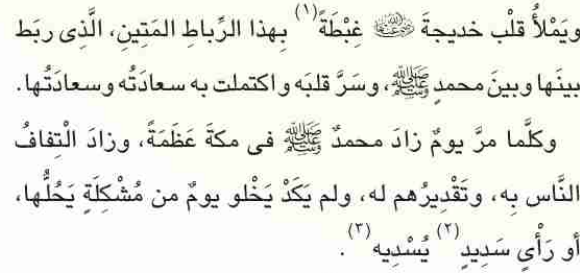 ويَمْلأُ قلْب خديجةَ رضي الله عنها غِبْطَةً(١) بِهذا الرِّباطِ المَتِينِ، الَّذِى ربَط
بينَها وبينَ محمدٍ ﷺ، وسَرَّ قلبَه واكتملت به سعادَتُه وسعادَتُها.
وكلَّما مرَّ يومٌ زادَ محمدٌ ﷺ فى مكةَ عَظَمَةً، وزادَ الْتِفافُ
النَّاس بِه، وتَقْدِيرُهم له، ولم يَكَدْ يَخْلو يومٌ من مُشْكِلَةٍ يَحُلُّها،
أو رَأْيٍ سَدِيدٍ(٢) يُسْدِيه(٣).